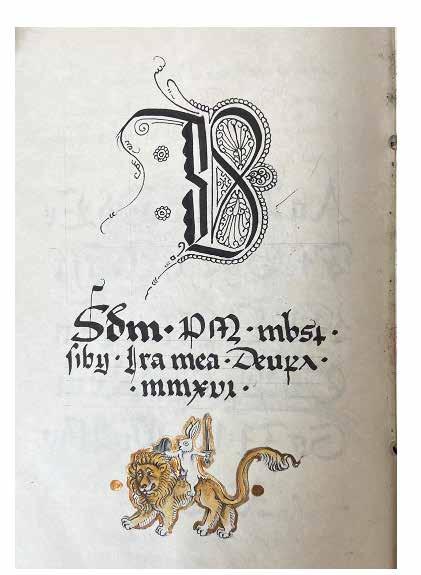 B
Sdm · PM · mbst ·
sibỹ · Ira mea · Deura ·
· mmxvi ·